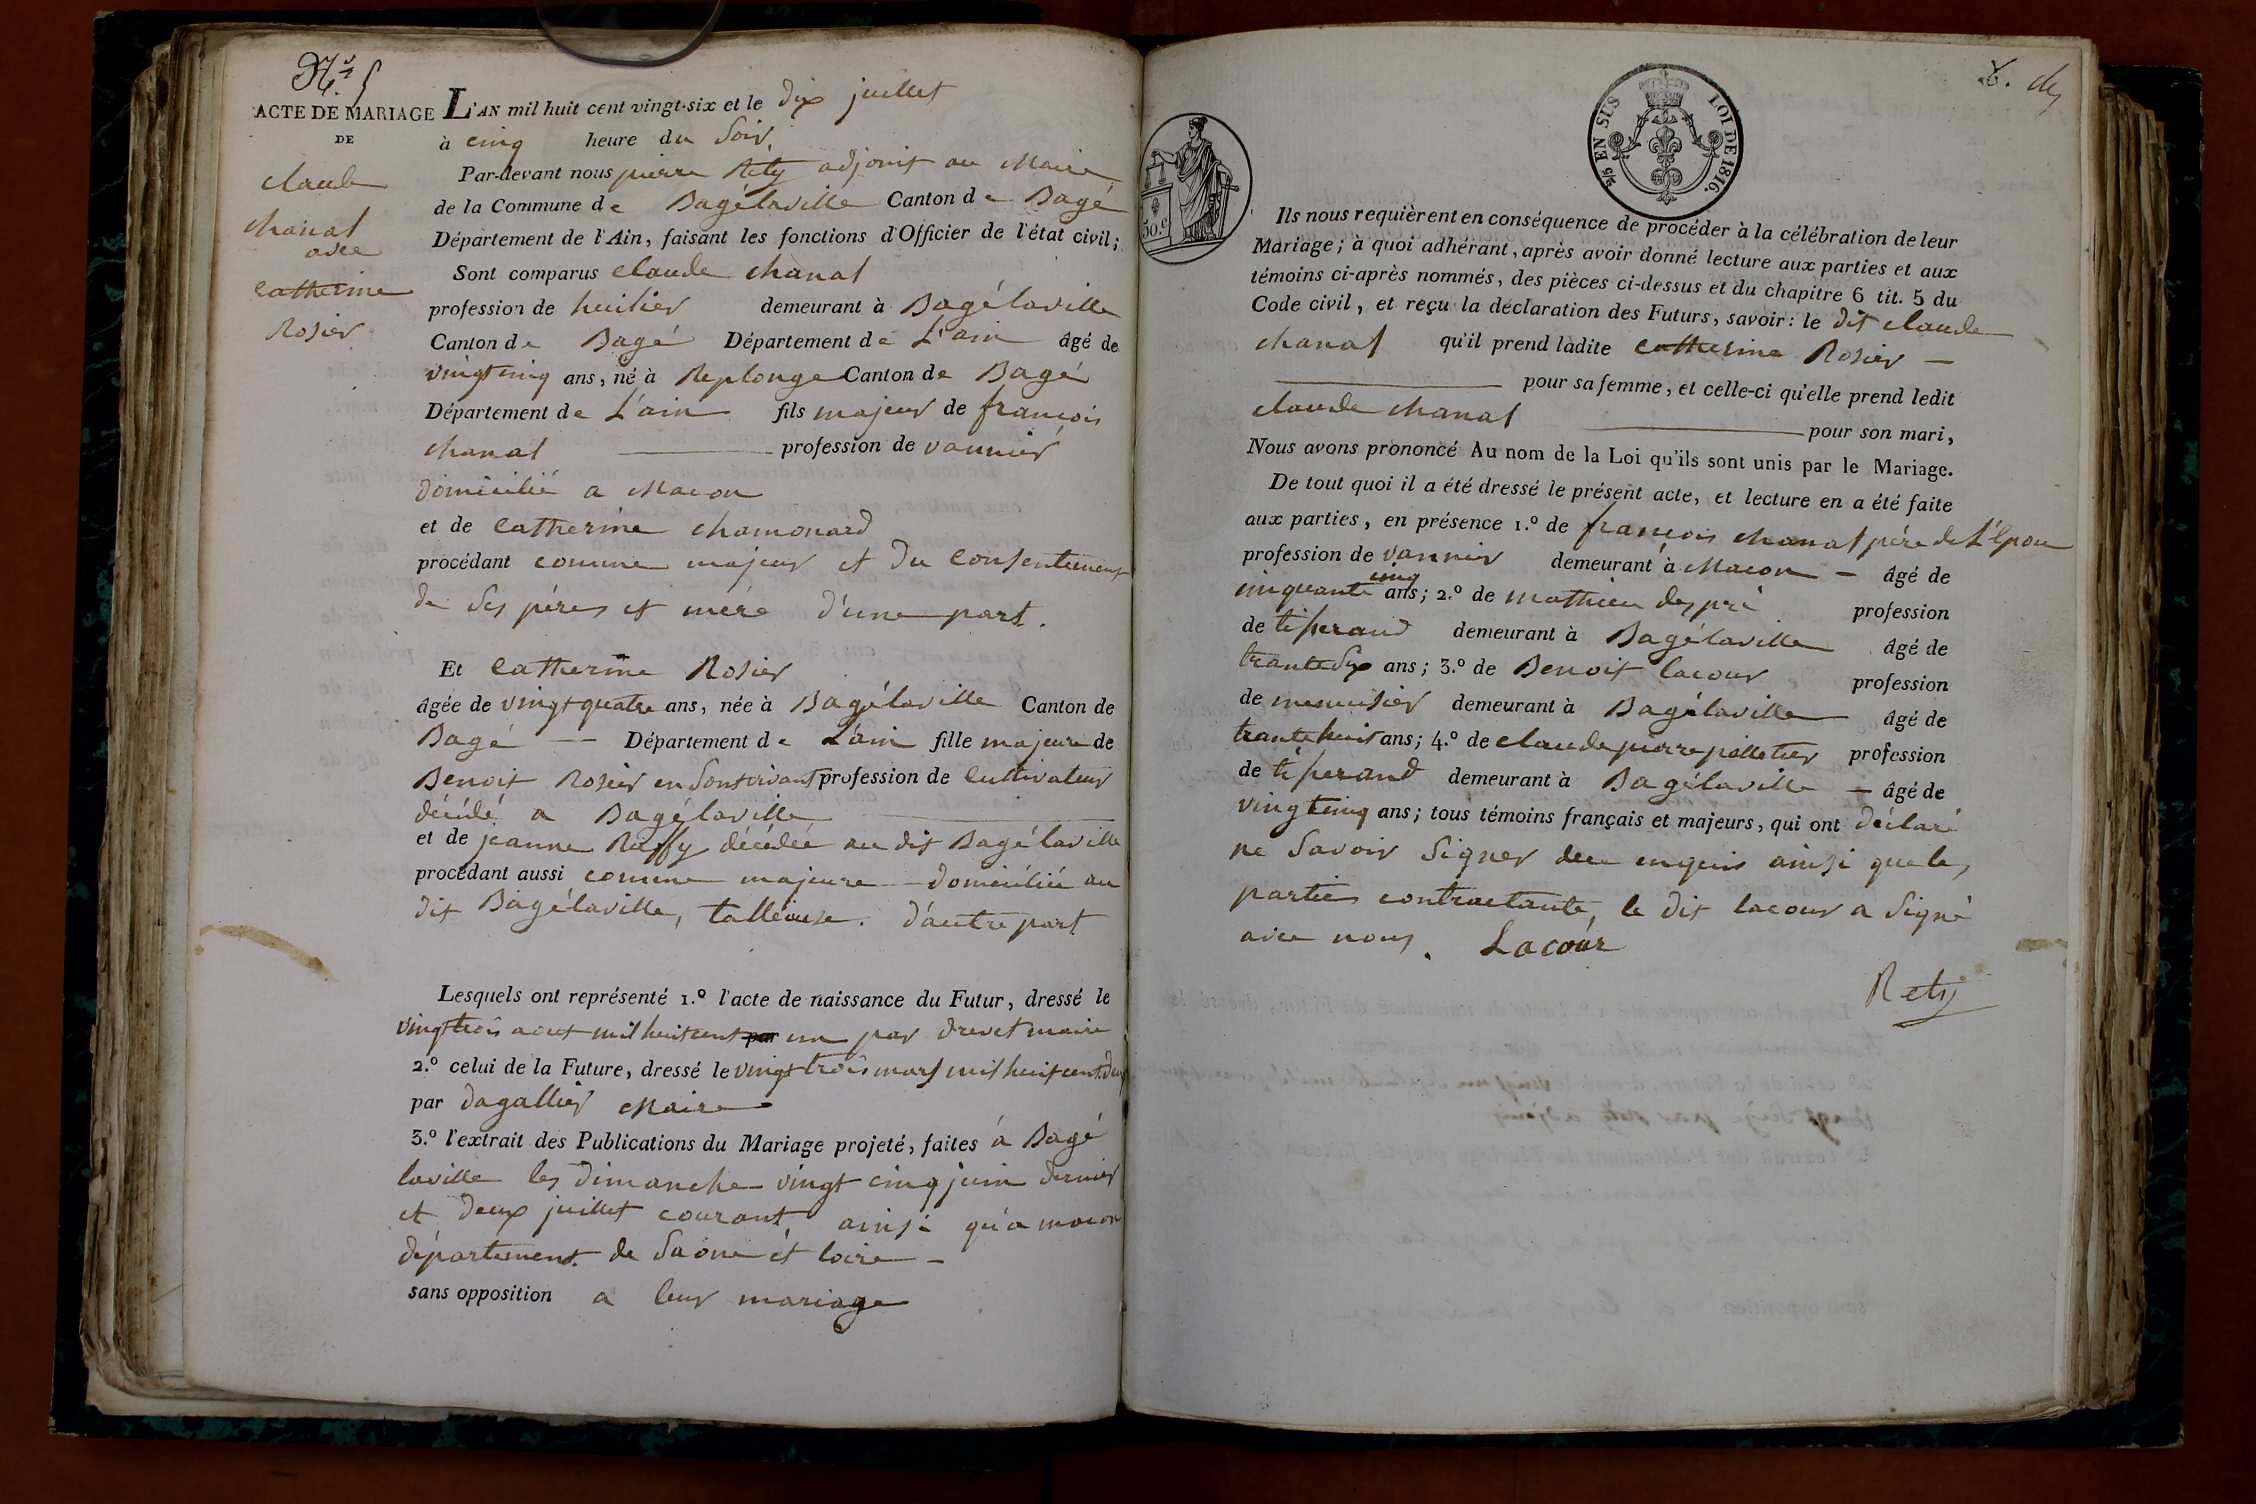 N.° 5
ACTE DE MARIAGE
DE
claude
chanal
avec
catherine
Rosier
L'AN mil huit cent vingt-six et le dix juillet
à cinq heure du soir
Par-devant nous pierre Réty adjoint au Maire
de la Commune de Bagélaville Canton de Bagé
Département de l'Ain, faisant les fonctions d'Officier de l'état civil;
Sont comparus claude chanal
profession de huilier demeurant à Bagélaville
Canton de Bagé Département de L'ain âgé de
vingt cinq ans, né à Replonge Canton de Bagé
Département de L'ain fils majeur de françois
chanal profession de vannier
domicilié a Macon
et de catherine chamonard
procédant comme majeur et du consentement
de ses péres et mére d'une part.
Et catherine Rosier
âgée de vingt quatre ans, née à Bagélaville Canton de
Bagé — Département de L'ain fille majeure de
Benoit Rosier en son vivant profession de cultivateur
décédé a Bagélaville
et de jeanne Ruffy décédée au dit Bagélaville
procédant aussi comme majeure domiciliée au
dit Bagélaville, talleuse. d'autre part
Lesquels ont représenté 1.° l'acte de naissance du Futur, dressé le
vingt trois aout mil huit cent par un par drevet maire
2.° celui de la Future, dressé le vingt trois mars mil huit cent deux
par dagallier Maire
3.° l'extrait des Publications du Mariage projeté, faites à Bagé
laville les dimanche vingt cinq juin dernier
et deux juillet courant, ainsi qu'a macon
département de Saône et loire —
sans opposition a leur mariage
5/5 EN SUS LOI DE 1816.
50.c
Ils nous requièrent en conséquence de procéder à la célébration de leur
Mariage; à quoi adhérant, après avoir donné lecture aux parties et aux
témoins ci-après nommés, des pièces ci-dessus et du chapitre 6 tit. 5 du
Code civil, et reçu la déclaration des Futurs, savoir: le dit claude
chanal qu'il prend ladite catherine Rosier —
pour sa femme, et celle-ci qu'elle prend ledit
claude chanal pour son mari,
Nous avons prononcé Au nom de la Loi qu'ils sont unis par le Mariage.
De tout quoi il a été dressé le présent acte, et lecture en a été faite
aux parties, en présence 1.° de françois chanal pére de L'Epoux
profession de vannier demeurant à Macon — âgé de
cinquante cinq ans; 2.° de mathieu despré profession
de tisserand demeurant à Bagélaville âgé de
trante six ans; 3.° de Benoit lacour profession
de menuisier demeurant à Bagélaville âgé de
trante huit ans; 4.° de claude pierre pelletier profession
de tisserand demeurant à Bagélaville — âgé de
vingt cinq ans; tous témoins français et majeurs, qui ont déclaré
ne savoir signer de ce enquis ainsi que les
parties contractante, le dit lacour a signé
avec nous. Lacour
Rety